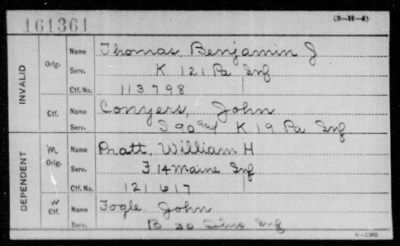 161361
(3-H-4)
INVALID
Orig.
Name Thomas Benjamin J
Serv. K 121 Pa Inf
Ctf. No. 113798
Ctf.
Name Conyers, John
Serv. K 19 Pa Inf
DEPENDENT
M. Orig.
Name Pratt, William H
Serv. F 14 Maine Inf
Ctf. No. 121617
W Ctf.
Name Fogle John
Serv. B 30 Inf